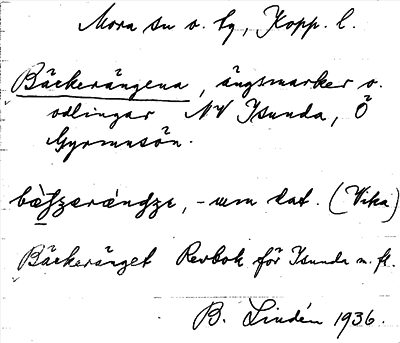 Mora sn o. tg, Kopp. l.
Bäckerängena, ängsmarker o.
odlingar NV Isunda, Ö
Gyrmnsön.
-um dat. (Vika)
Bäckeränget Revbok för Isunda m. fl.
B. Lindén 1936.